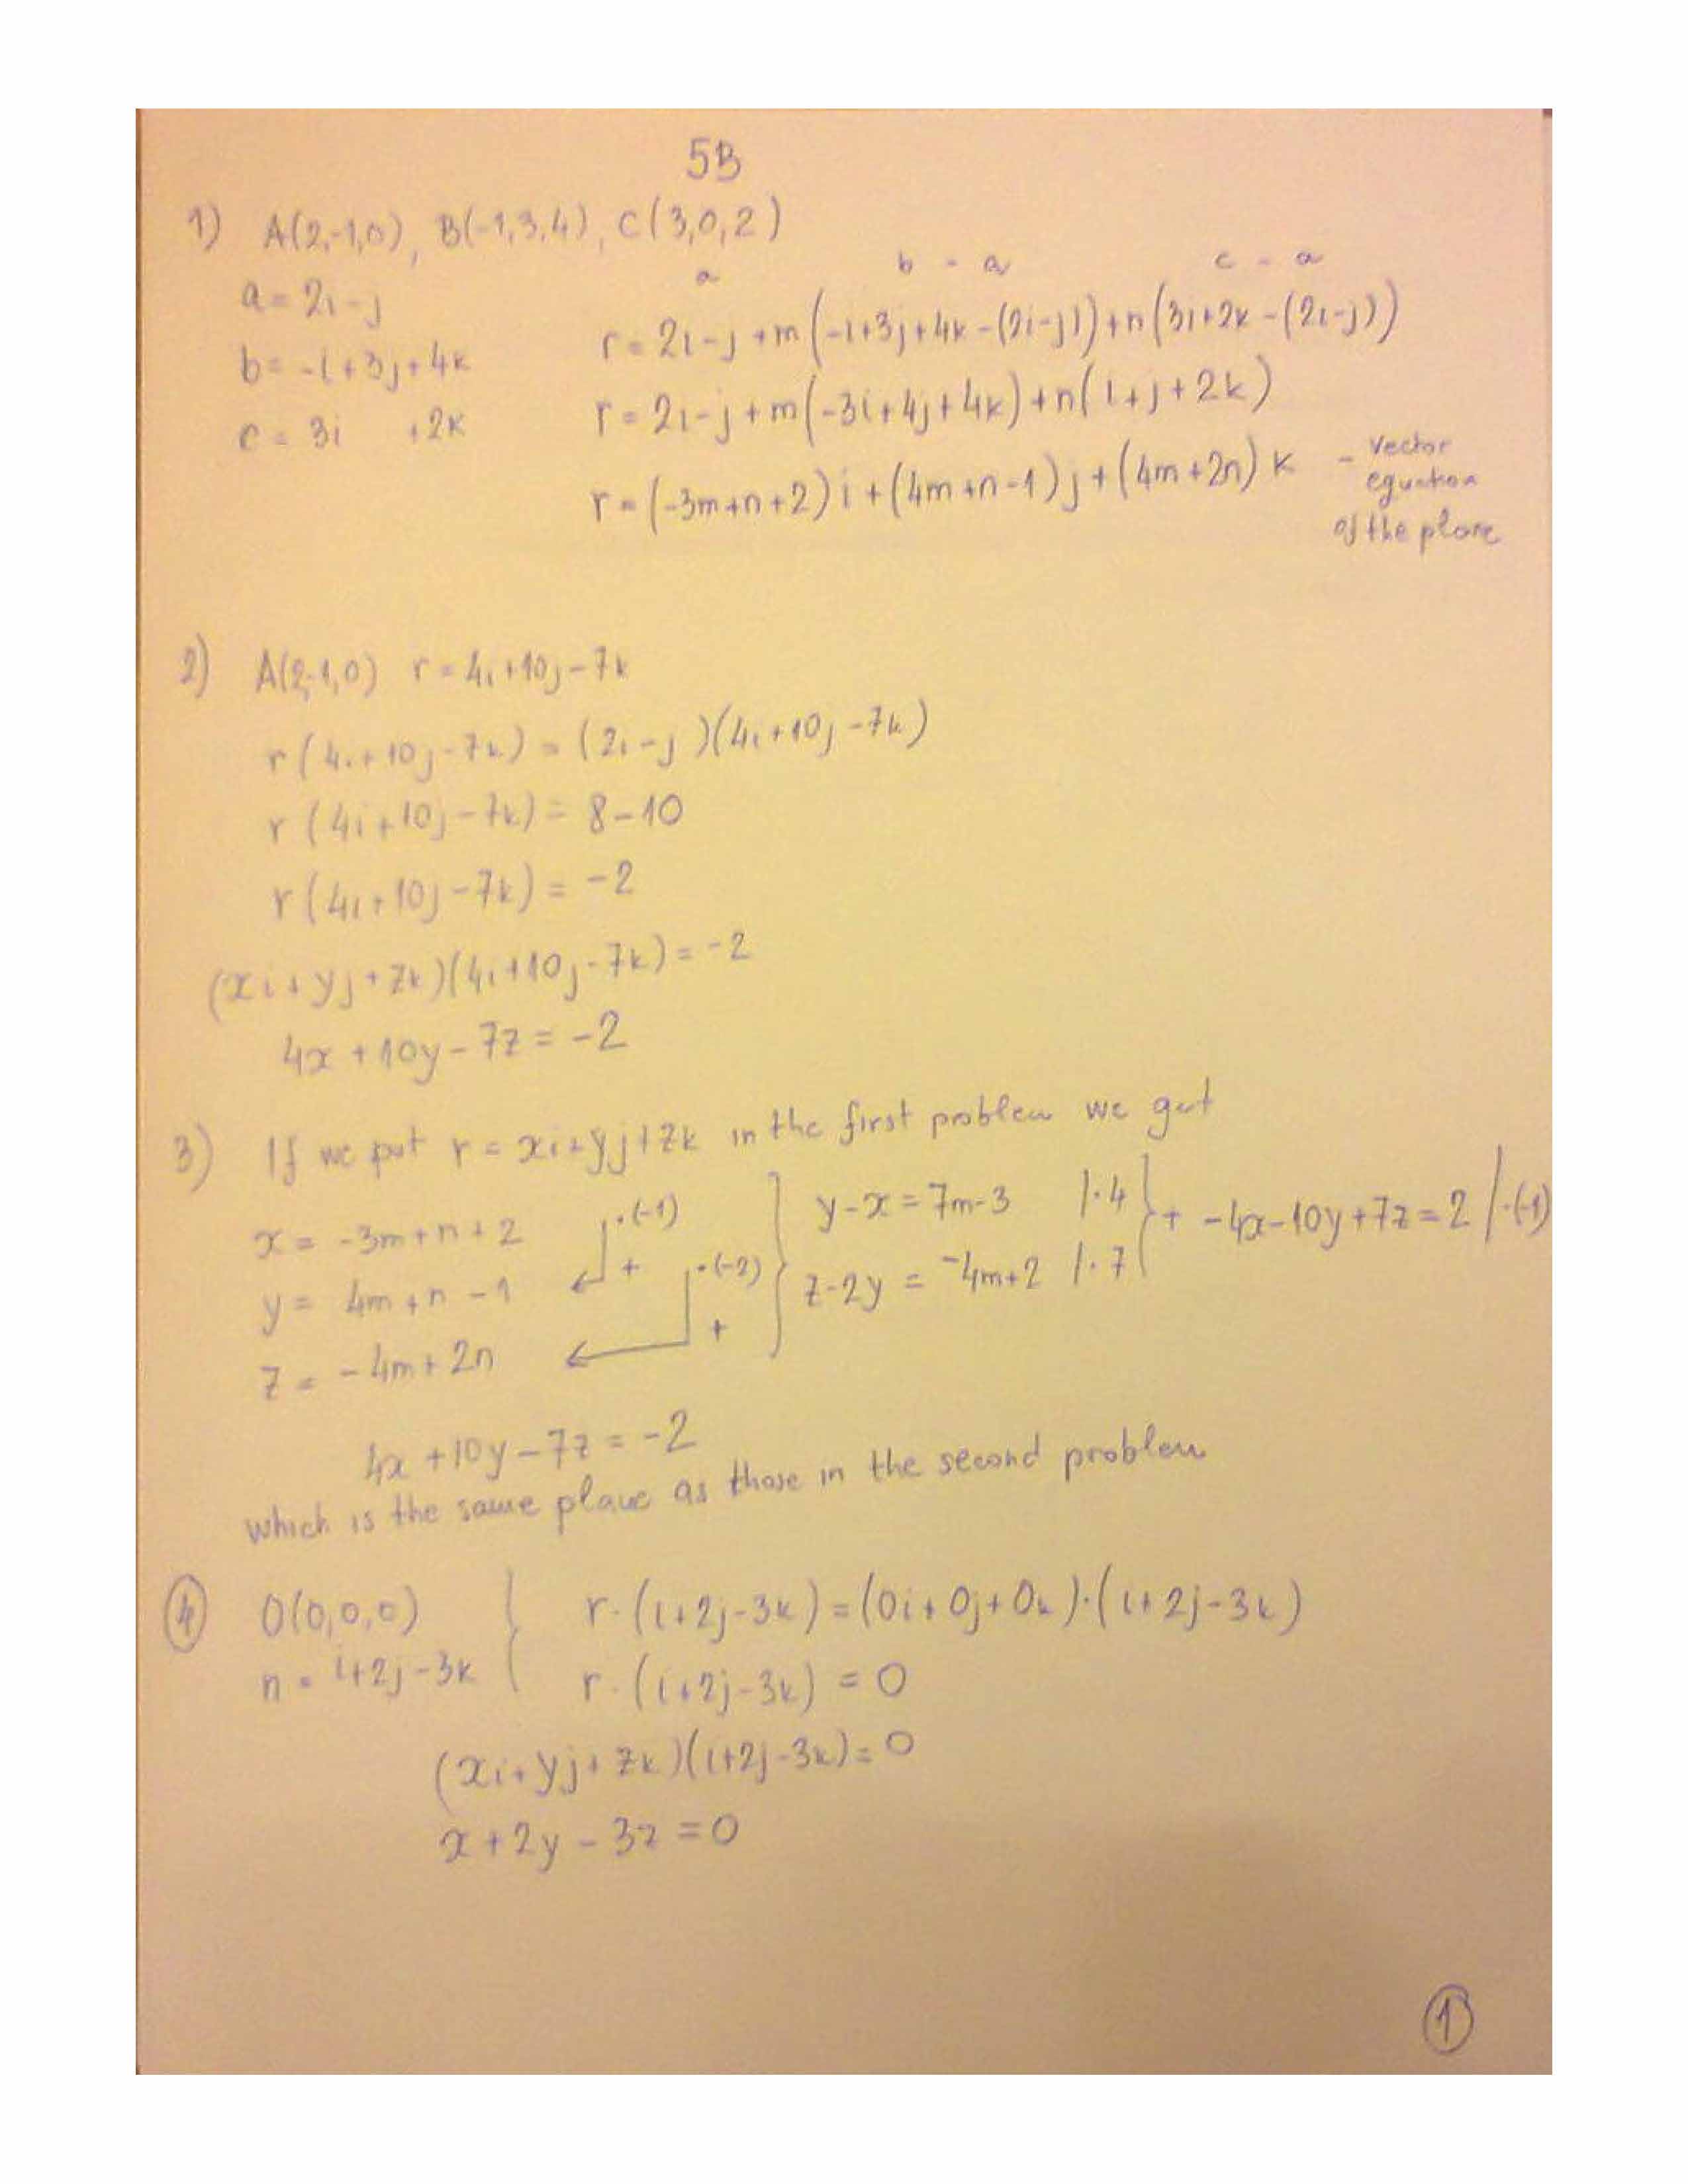 5B
1) A(2,-1,0), B(-1,3,4), C(3,0,2)
a b - a c - a
a = 2i - j
r = 2i - j + m(-i+3j+4k-(2i-j))+n(3i+2k-(2i-j))
b = -i+3j+4k
r = 2i - j + m(-3i+4j+4k)+n(i+j+2k)
c = 3i +2k
r = (-3m+n+2)i+(4m+n-1)j+(4m+2n)k - Vector
equation
of the plane
2) A(2,-1,0) r = 4i+10j-7k
r(4i+10j-7k) = (2i-j)(4i+10j-7k)
r(4i+10j-7k) = 8-10
r(4i+10j-7k) = -2
(xi+yj+zk)(4i+10j-7k) = -2
4x+10y-7z = -2
3) If we put r = xi+yj+zk in the first problem we get
x = -3m+n+2 ·(-1) y-x = 7m-3 /·4 + -4x-10y+7z = 2 /·(-1)
y = 4m+n-1 + ·(-2) z-2y = -4m+2 /·7
z = -4m+2n +
4x+10y-7z = -2
which is the same plane as those in the second problem
4 O(0,0,0) r·(i+2j-3k) = (0i+0j+0k)·(i+2j-3k)
n = i+2j-3k r·(i+2j-3k) = 0
(xi+yj+zk)(i+2j-3k) = 0
x+2y-3z = 0
1